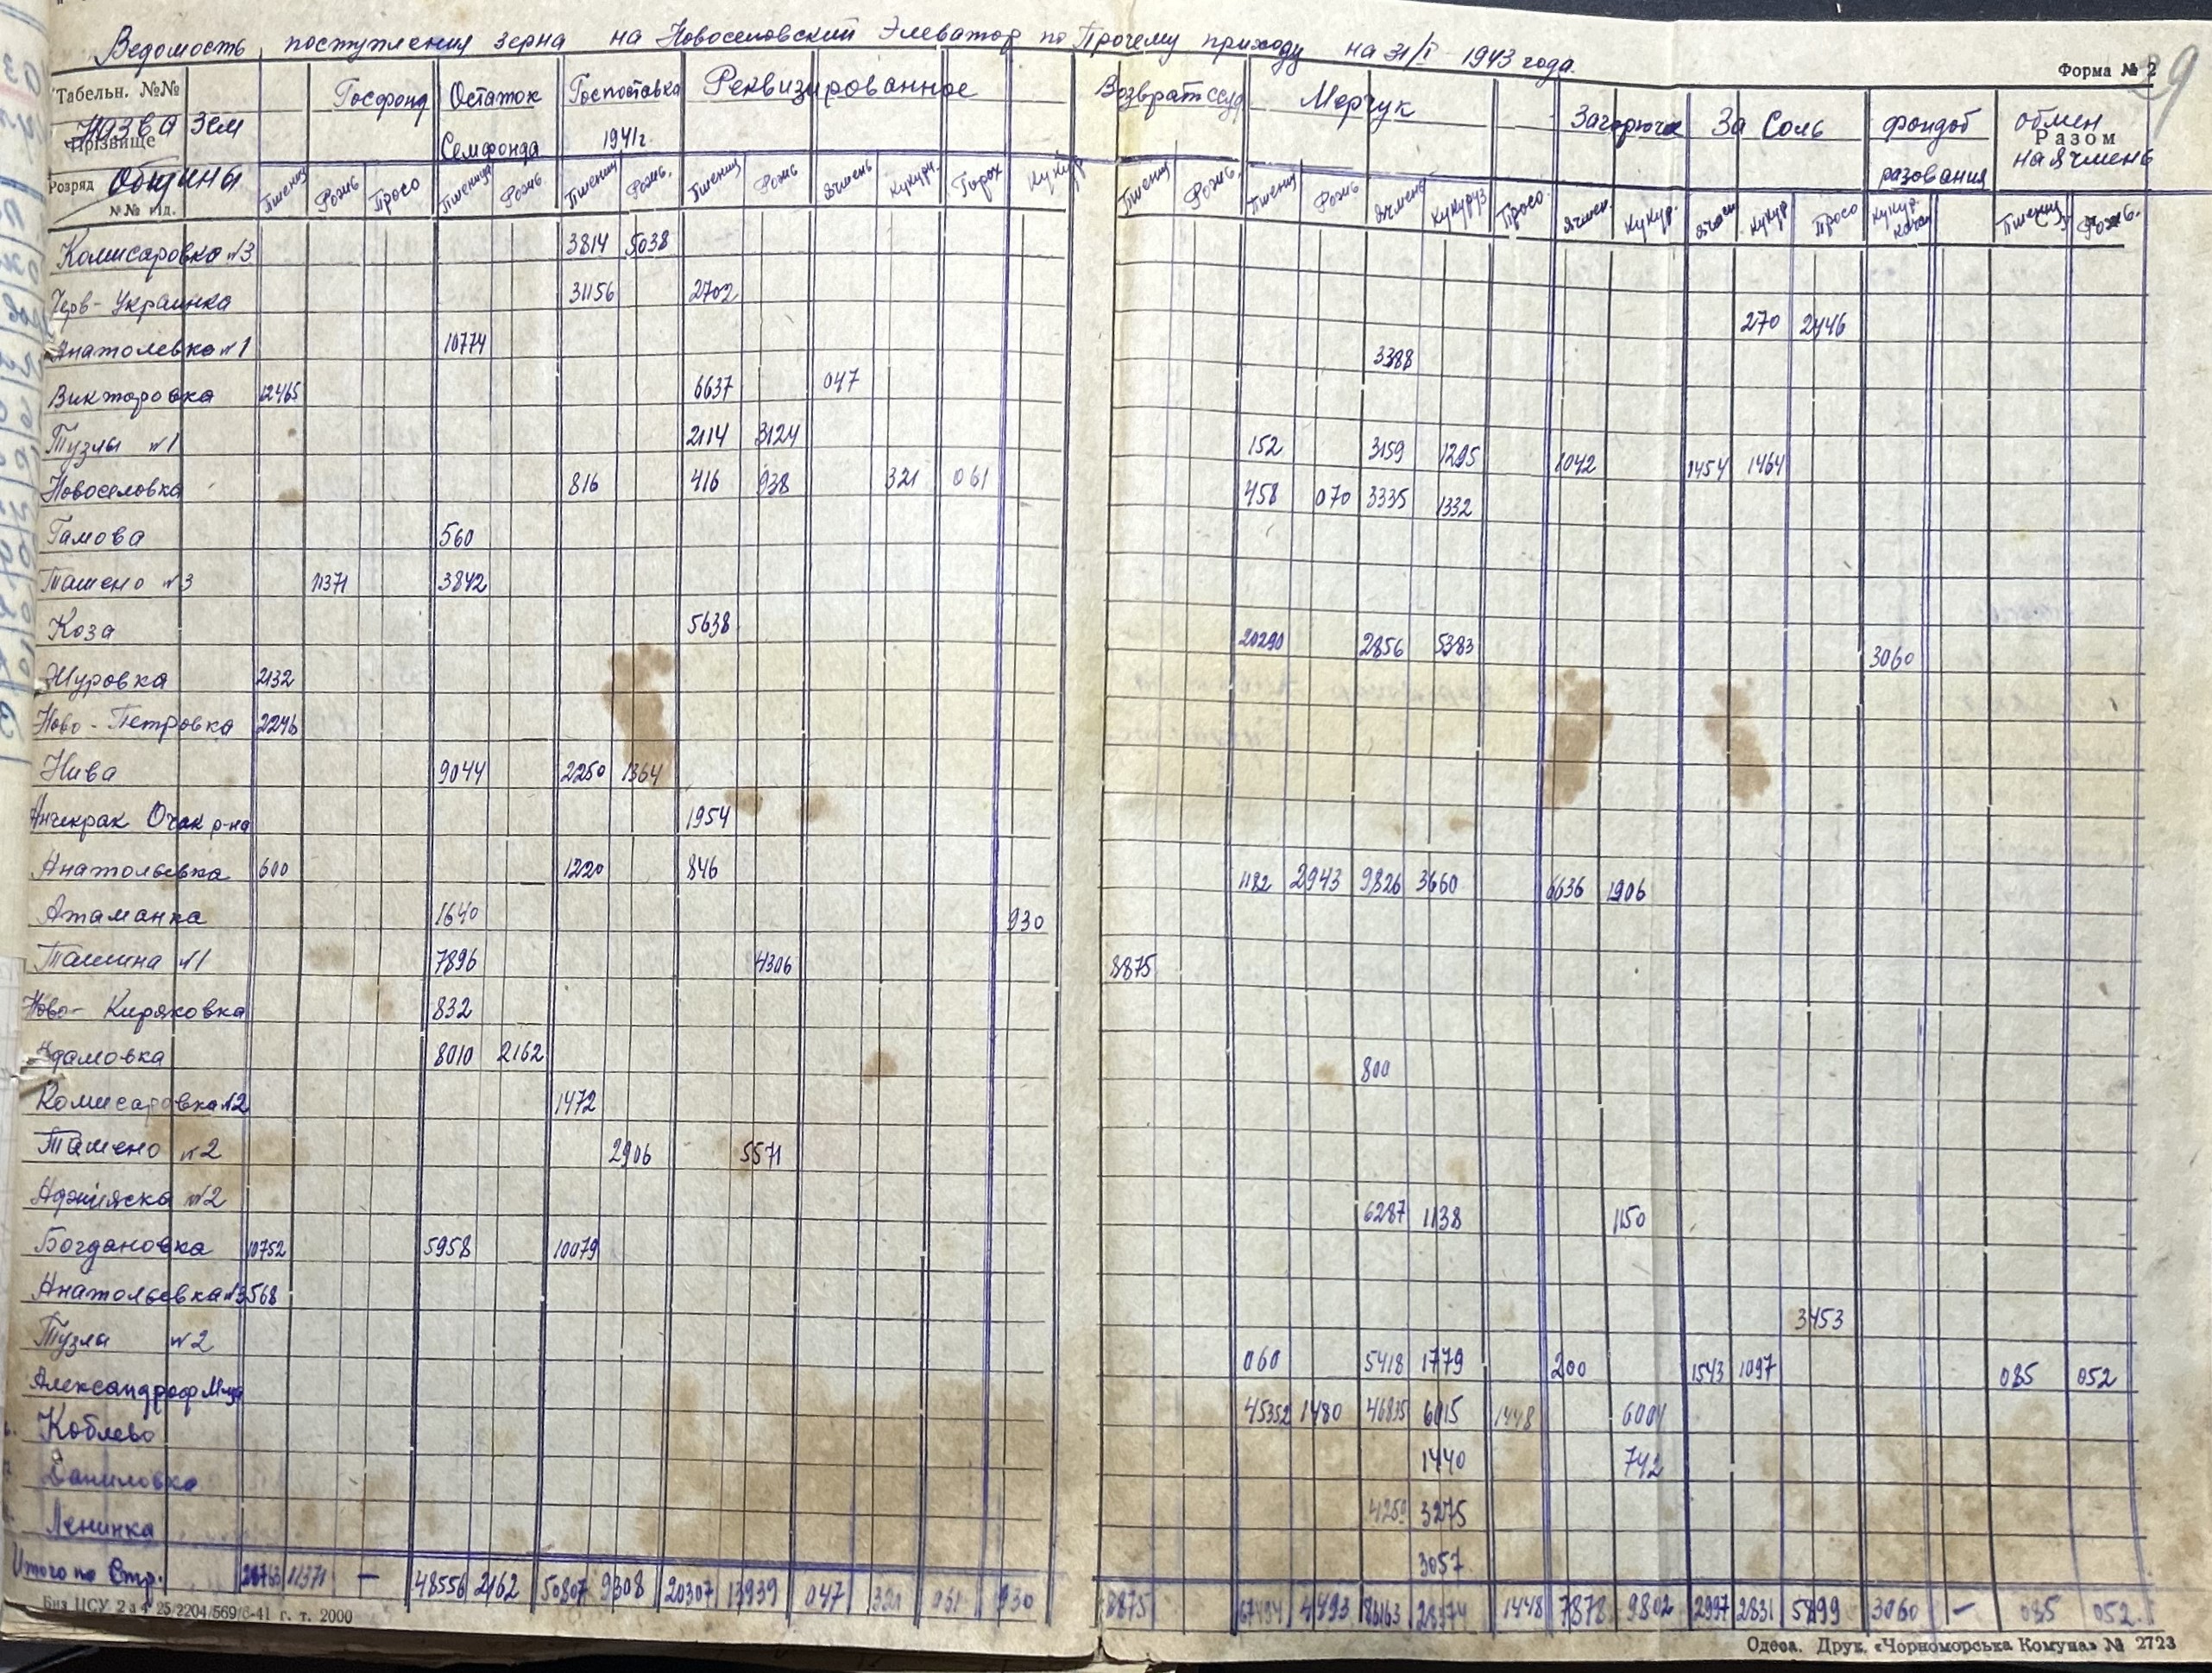 Ведомость поступления зерна на Новоселовский Элеватор по Прочему приходу на 31/I 1943 года.
Форма № 2
29
Табельн. №№
Прізвище
Розряд
№№ під.
Назва зем
Общины
Госфонд Остаток Семфонда Госпоставка 1941г. Реквизированное Возврат ссуд Мерчук Загорюче За Соль фондоб разования Разом обмен на ячмень
Пшениц Рожь Просо Пшеница Рожь Пшениц Рожь. Пшениц Рожь Ячмень Кукур. Горох Кукур Пшениц Рожь. Пшениц Рожь Ячмень Кукуруз Просо. Ячмен. Кукур. Ячмен Кукур Просо Кукур. качан Пшениц Рожь.
Комисаровка №3 3814 5038
Черв-Украинка 31156 2702 270 2446
Анатолевка №1 10774 3388
Викторовка 12465 6637 047
Тузлы №1 2114 3124 152 3159 1295 1042 1454 1464
Новоселовка 816 416 938 321 061 458 070 3335 1332
Гамова 560
Ташено №3 11371 3842
Коза 5638 20290 2856 5383 3060
Журовка 2132
Ново-Петровка 2246
Нива 9044 2250 1364
Анчекрак Очак р-на 1954
Анатольевка 600 1220 846 1182 2943 9826 3660 6636 1906
Атаманка 1640 930
Ташина №1 7896 4306 8875
Ново-Киряковка 832
Адамовка 8010 2162 800
Комисаровка №2 1472
Ташено №2 2906 5571
Аджияска №2 6287 1138 1150
Богдановка 10752 5958 10079
Анатольевка №3 568 3453
Тузла №2 060 5418 1779 200 1543 1097 085 052
Александроф 45352 1480 46835 6015 1448 6004
Коблево 1440 742
Даниловка 4259 3275
Ленинка 3057
Итого по Стр. 28763 11371 — 48556 2162 50807 9308 20307 13939 047 321 061 930 8875 67494 4493 86163 28374 1448 7878 9802 2997 2831 5899 3060 — 085 052.
Виз ЦСУ 2 а 4 25/2204/569/6-41 г. т. 2000
Одеса. Друк. «Чорноморська Комуна» № 2723